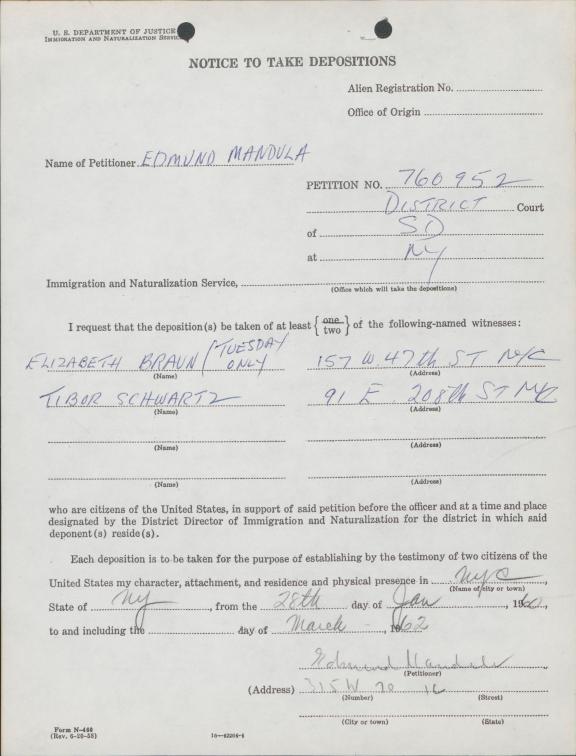 U. S. DEPARTMENT OF JUSTICE
IMMIGRATION AND NATURALIZATION SERVICE
NOTICE TO TAKE DEPOSITIONS
Alien Registration No.
Office of Origin
Name of Petitioner EDMUND MANDULA
PETITION NO. 760952
DISTRICT Court
of SD
at NY
Immigration and Naturalization Service,
(Office which will take the depositions)
I request that the deposition(s) be taken of at least {one two} of the following-named witnesses:
ELIZABETH BRAUN / TUESDAY ONLY 157 W 47th ST NYC
(Name) (Address)
TIBOR SCHWARTZ 91 E. 208th ST NYC
(Name) (Address)
(Name) (Address)
(Name) (Address)
who are citizens of the United States, in support of said petition before the officer and at a time and place
designated by the District Director of Immigration and Naturalization for the district in which said
deponent(s) reside(s).
Each deposition is to be taken for the purpose of establishing by the testimony of two citizens of the
United States my character, attachment, and residence and physical presence in NYC,
(Name of city or town)
State of NY, from the 28th day of Jan, 1960,
to and including the day of March, 1962
Edmund Mandula
(Petitioner)
(Address) 315 W 70
(Number) (Street)
(City or town) (State)
Form N-460
(Rev. 6-20-58)